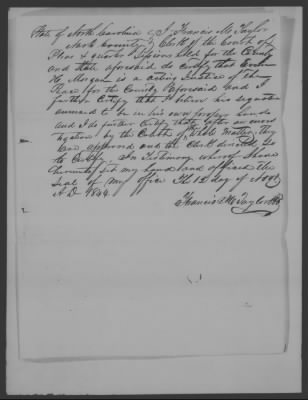 State of North Carolina I Francis M Taylor
Nash County Clerk of the Court of
Pleas & quarter Sessions held for the County
and State aforesaid do Certify that
H. Morgan is a acting Justice of the
Peace for the County aforesaid and I
further Certify that I believe his signature
annexed to be in his own proper hand
and I do further Certify that after an
by the Court
are approved and the Clerk directed so
to Certify. In Testimony whereof I have
hereunto set my hand and affixed the
Seal of my office Th 12 day of Novr
A D 1844.
Francis M Taylor